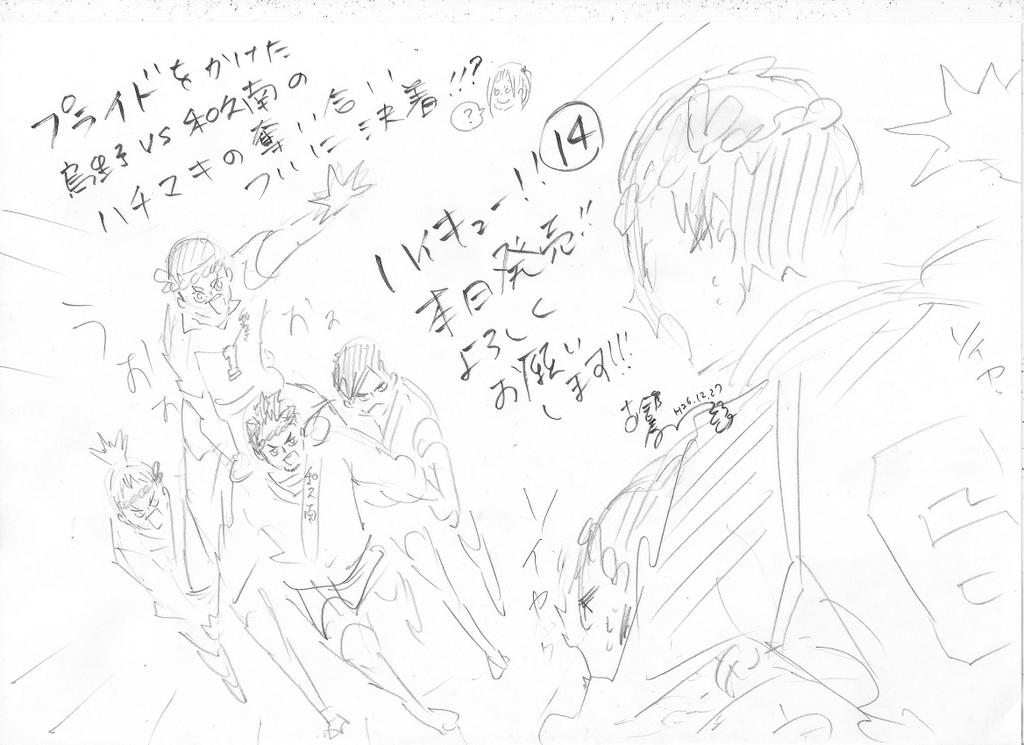 プライドをかけた
烏野VS和久南の
ハチマキの奪い合い
ついに決着!!?
?
14
ハイキュー!!
本日発売!!
よろしく
お願い
します!!!
H26.12.27
うおおおお
1
和久南
ワイヤ
ワイヤ